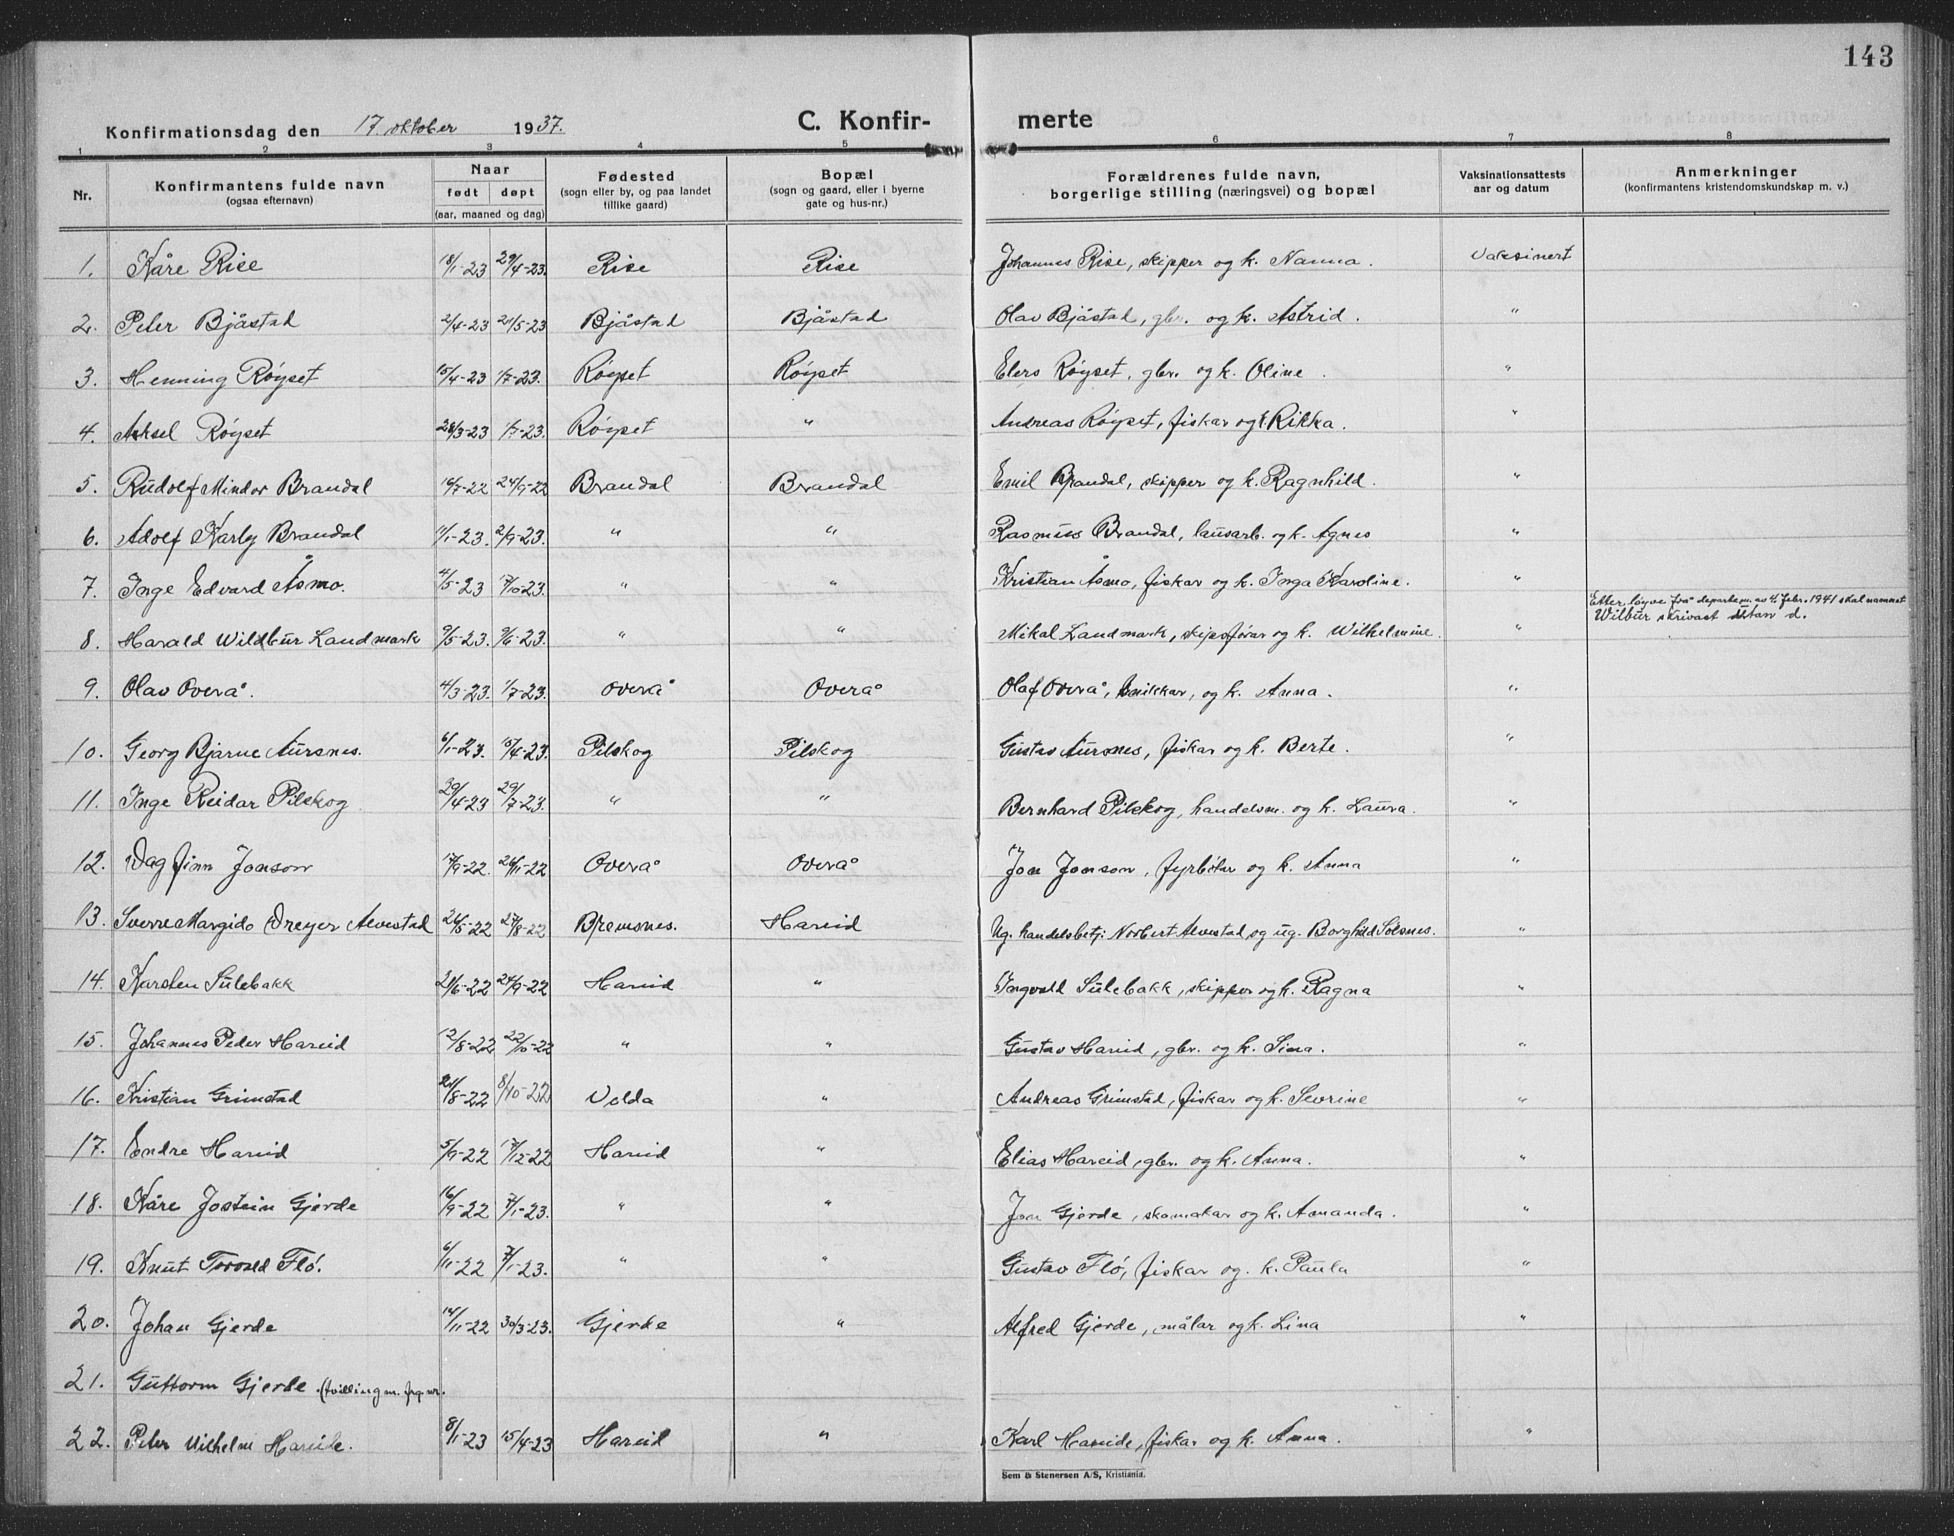 143
Konfirmationsdag den 17. oktober 1937. C. Konfir- merte
1 2 3 4 5 6 7 8
Nr. Konfirmantens fulde navn (ogsaa efternavn) Naar født døpt (aar, maaned og dag) Fødested (sogn eller by, og paa landet tillike gaard) Bopæl (sogn og gaard, eller i byerne gate og hus-nr.) Forældrenes fulde navn, borgerlige stilling (næringsvei) og bopæl Vaksinationsattests aar og datum Anmerkninger (konfirmantens kristendomskundskap m. v.)
1. Kåre Rise 18/1-23 29/4-23. Rise Rise Johannes Rise, skipper og k. Nanna. Vaksinert
2. Peter Bjåstad 2/4-23 21/5-23 Bjåstad Bjåstad Olav Bjåstad, gbr. og k. Astrid. "
3. Henning Røyset 15/4-23 1/7-23. Røyset Røyset Elers Røyset, gbr. og k. Oline. "
4. Aksel Røyset 28/3-23 1/7-23. Røyset " Andreas Røyset, fiskar og k. Rikka. "
5. Rudolf Mindor Brandal 16/7-22 24/9-22 Brandal Brandal Emil Brandal, skipper og k. Ragnhild. "
6. Adolf Karly Brandal 11/1-23. 2/9-23. " " Rasmus Brandal, lausarb. og k. Agnes "
7. Inge Edvard Åsmo. 4/5-23 17/10-23. " " Kristian Åsmo, fiskar og k. Inga Karoline. "
Etter løyve frå departem. av 4. febr. 1941 skal namnet Wilbur skrivast utan d.
8. Harald Wildbur Landmark 9/5-23. 9/6-23. " " Mikal Landmark, skipsførar og k. Wilhelmine. "
9. Olav Overå. 4/3-23. 1/7-23. Overå Overå Olaf Overå, snikkar, og k. Anna. "
10. Georg Bjarne Aursnes. 6/1-23. 15/4-23. Pilskog Pilskog Gustav Aursnes, fiskar og k. Berte. "
11. Inge Reidar Pilskog 29/4-23 29/7-23. " " Bernhard Pilskog, handelsm. og k. Laura. "
12. Dagfinn Jonson 17/9-22. 26/11-22 Overå Overå Jon Jonson, fyrbøter og k. Anna "
13. Sverre Margido Dreyer Alvestad 26/5-22 27/8-22 Bremsnes. Hareid Ug. handelsbetj. Norbert Alvestad og ug. Borghild Solsnes. "
14. Karsten Sulebakk 21/6-22 24/9-22 Hareid " Ingvald Sulebakk, skipper og k. Ragna "
15. Johannes Peder Hareid 12/8-22 22/10-22 " " Gustav Hareid, gbr. og k. Sina. "
16. Kristian Grimstad 21/8-22 8/10-22 Volda " Andreas Grimstad, fiskar og k. Sevrine "
17. Endre Hareid 5/9-22 17/12-22 Hareid " Elias Hareid, gbr. og k. Anna. "
18. Kåre Jostein Gjerde 16/9-22 7/1-23. " " Jon Gjerde, skomakar og k. Amanda. "
19. Knut Torvald Flø. 6/11-22 7/1-23. " " Gustav Flø, fiskar og k. Paula "
20. Johan Gjerde 14/11-22 30/3-23. Gjerde " Alfred Gjerde, målar og k. Lina "
21. Guttorm Gjerde. (tvilling m. frg. nr.
22. Peter Vilhelm Hareide. 8/1-23 15/4-23 Hareid " Karl Hareide, fiskar og k. Anna. "
Sem & Stenersen A/S, Kristiania.